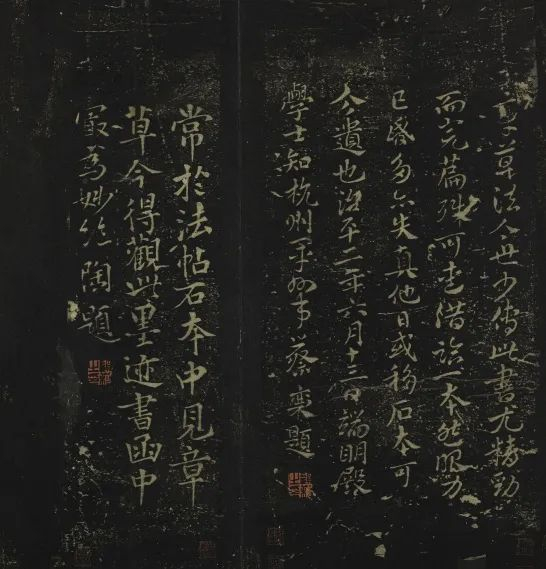 章草法人世少傳此書尤精勁
而完篇殊可愛借臨一本然眼力
已昏多亦失真他日或移石本可
分遺也治平二年六月十三日端明殿
學士知杭州軍州事蔡襄題
常於法帖石本中見章
草今得觀此墨迹書函中
最為妙絕陶題